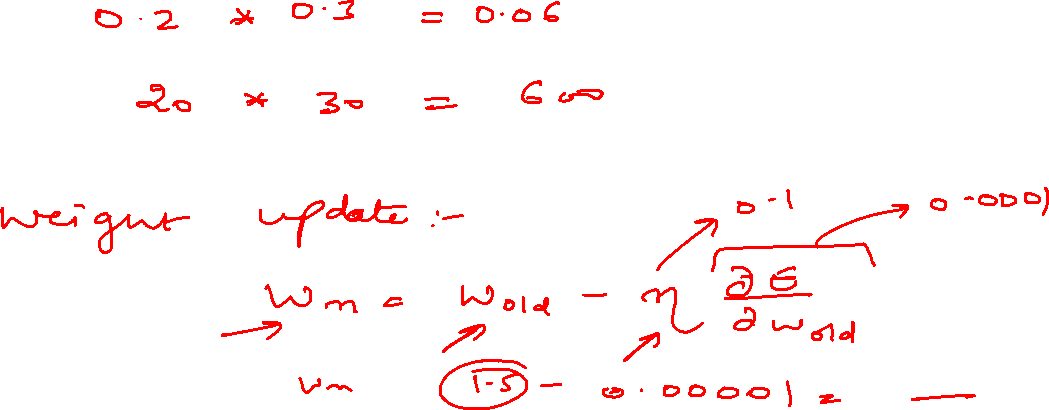 0.2 * 0.3 = 0.06
20 * 30 = 600
weight update :-
0.1 0.0001
Wn = Wold - η ∂E/∂wold
wn 1.5 - 0.00001 =